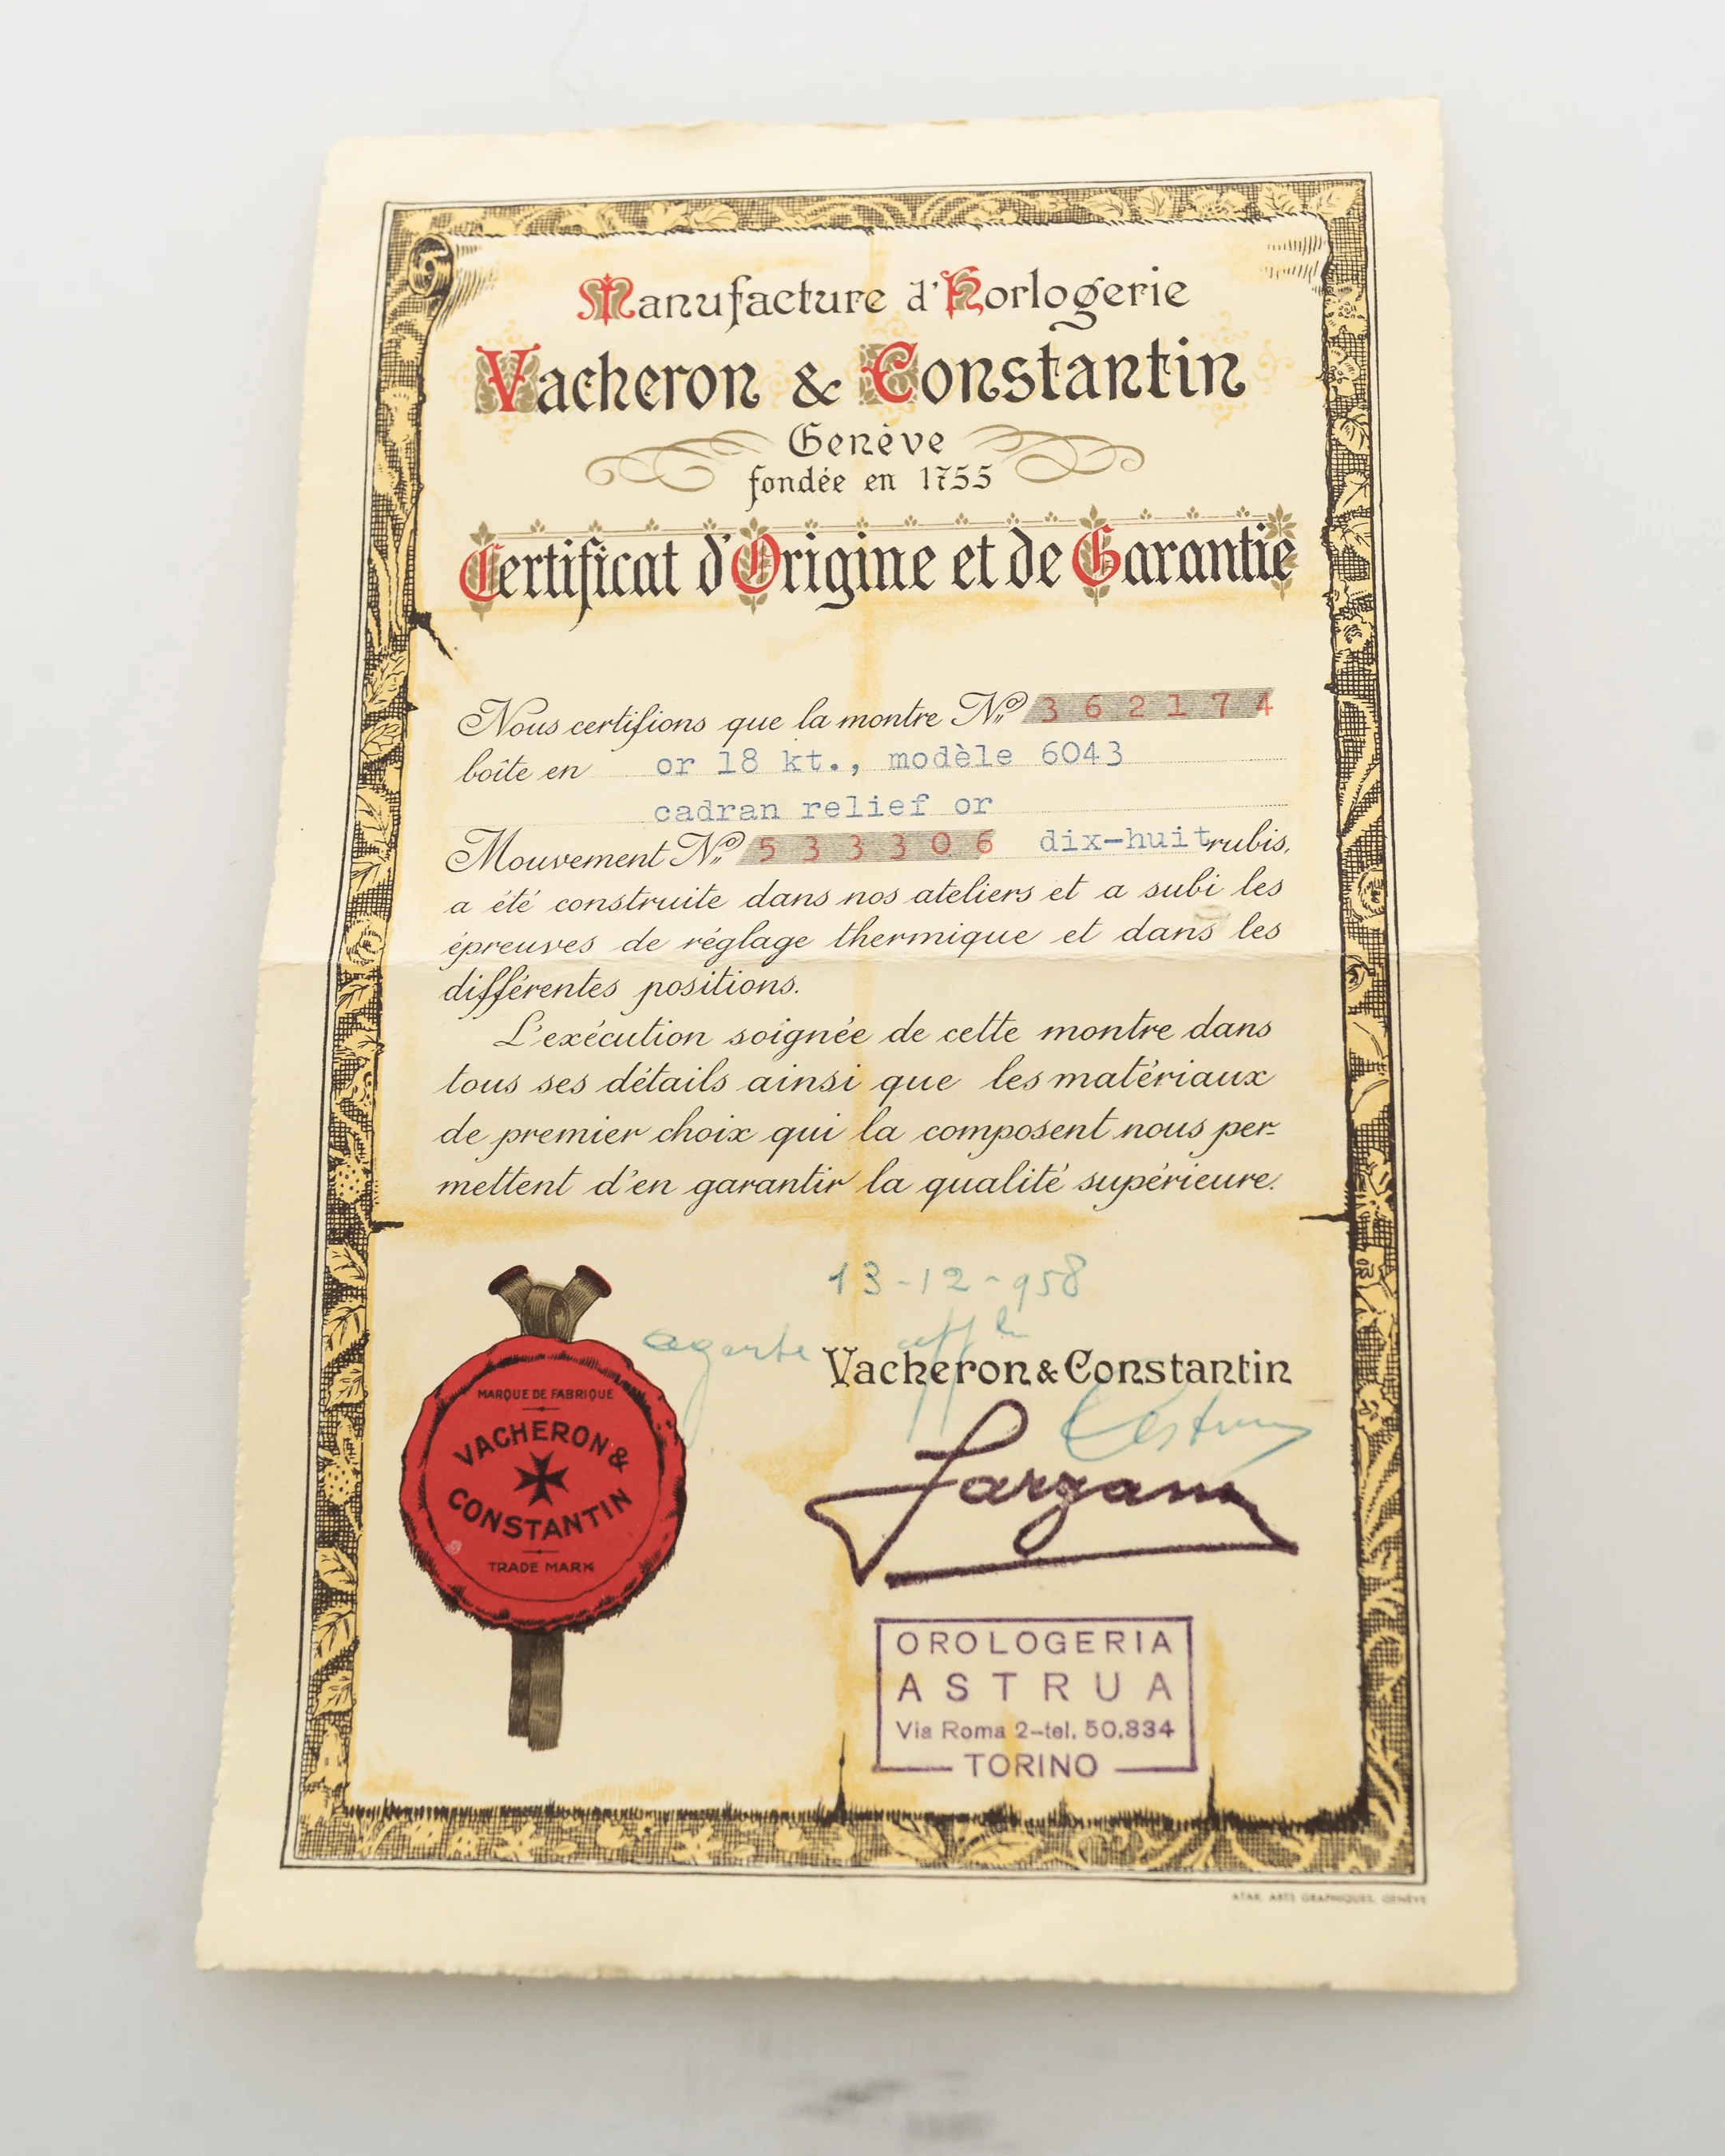 Manufacture d'Horlogerie
Vacheron & Constantin
Genève
fondée en 1755
Certificat d'Origine et de Garantie
Nous certifions que la montre No 362174
boîte en or 18 kt., modèle 6043
cadran relief or
Mouvement No 533306 dix-huit rubis,
a été construite dans nos ateliers et a subi les
épreuves de réglage thermique et dans les
différentes positions.
L'exécution soignée de cette montre dans
tous ses détails ainsi que les matériaux
de premier choix qui la composent nous per-
mettent d'en garantir la qualité supérieure.
13-12-958
Vacheron & Constantin
MARQUE DE FABRIQUE
VACHERON &
CONSTANTIN
TRADE MARK
OROLOGERIA
ASTRUA
Via Roma 2-tel. 50.834
TORINO
ATAR. ARTS GRAPHIQUES, GENÈVE